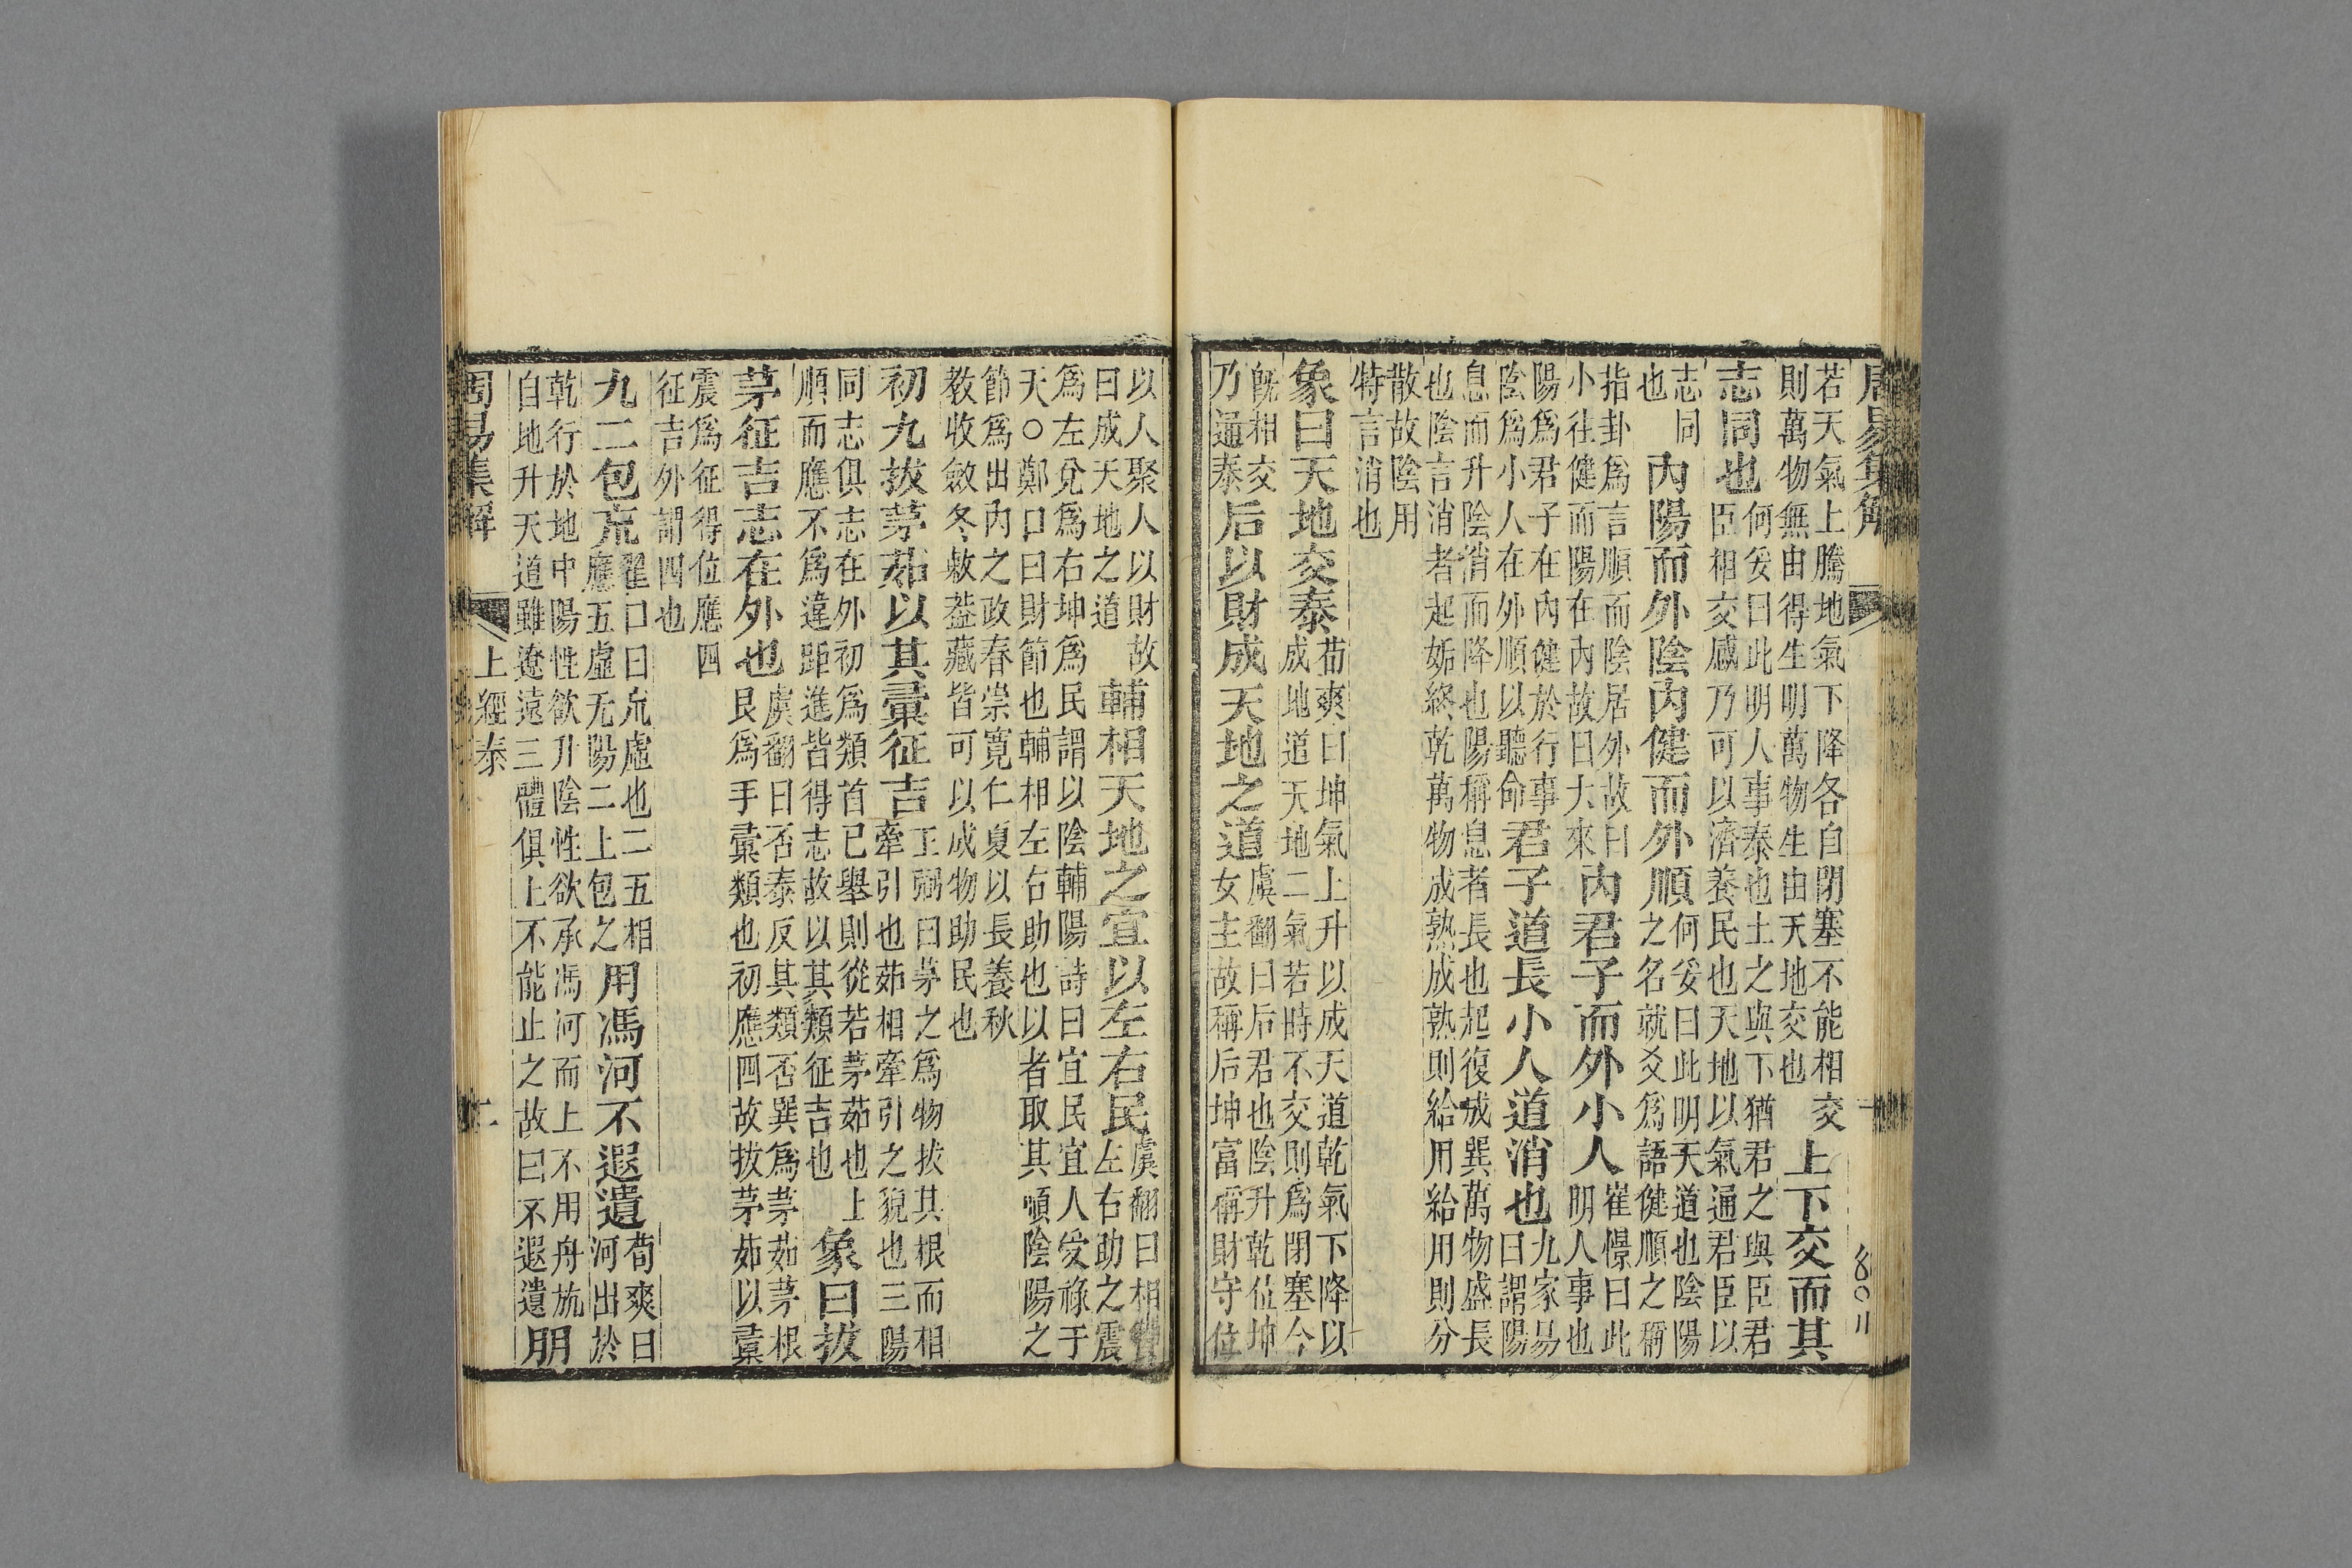 周易集解
若天氣上騰地氣下降各自閉塞不能相交
則萬物無由得生明萬物生由天地交也
上下交而其
志同也
何妥曰此明人事泰也土之與下猶君之與臣君
臣相交感乃可以濟養民也天地以氣通君臣以
志同
也
內陽而外陰內健而外順
何妥曰此明天道也陰陽
之名就爻爲語健順之稱
指卦爲言順而陰居外故曰
小往健而陽在內故曰大來
內君子而外小人
崔憬曰此
明人事也
陽爲君子在內健於行事
陰爲小人在外順以聽命
君子道長小人道消也
九家易
曰謂陽
息而升陰消而降也陽稱息者長也起復成巽萬物盛長
也陰言消者起姤終乾萬物成熟成熟則給用給用則分
散故陰用
特言消也
象曰天地交泰
荀爽曰坤氣上升以成天道乾氣下降以
成地道天地二氣若時不交則爲閉塞今
旣相交
乃通泰
后以財成天地之道
虞翻曰后君也陰升乾位坤
女主故稱后坤富稱財守位
以人聚人以財故
曰成天地之道
輔相天地之宜以左右民
虞翻曰相贊
左右助之震
爲左兌爲右坤爲民謂以陰輔陽詩曰宜民宜人受祿于
天○鄭口曰財節也輔相左右助也以者取其順陰陽之
節爲出內之政春崇寬仁夏以長養秋
敎收斂冬敕葢藏皆可以成物助民也
初九拔茅茹以其彙征吉
王弼曰茅之爲物拔其根而相
牽引也茹相牽引之貌也三陽
同志俱志在外初爲類首已舉則從若茅茹也上
順而應不爲違距進皆得志故以其類征吉也
象曰拔
茅征吉志在外也
虞翻曰否泰反其類否巽爲茅茹茅根
艮爲手彙類也初應四故拔茅茹以彙
震爲征得位應四
征吉外謂四也
九二包巟
翟口曰巟虛也二五相
應五虛无陽二上包之
用馮河不遐遺
荀爽曰
河出於
乾行於地中陽性欲升陰性欲承馮河而上不用舟航
自地升天道雖遼遠三體俱上不能止之故曰不遐遺
朋
周易集解
上經泰